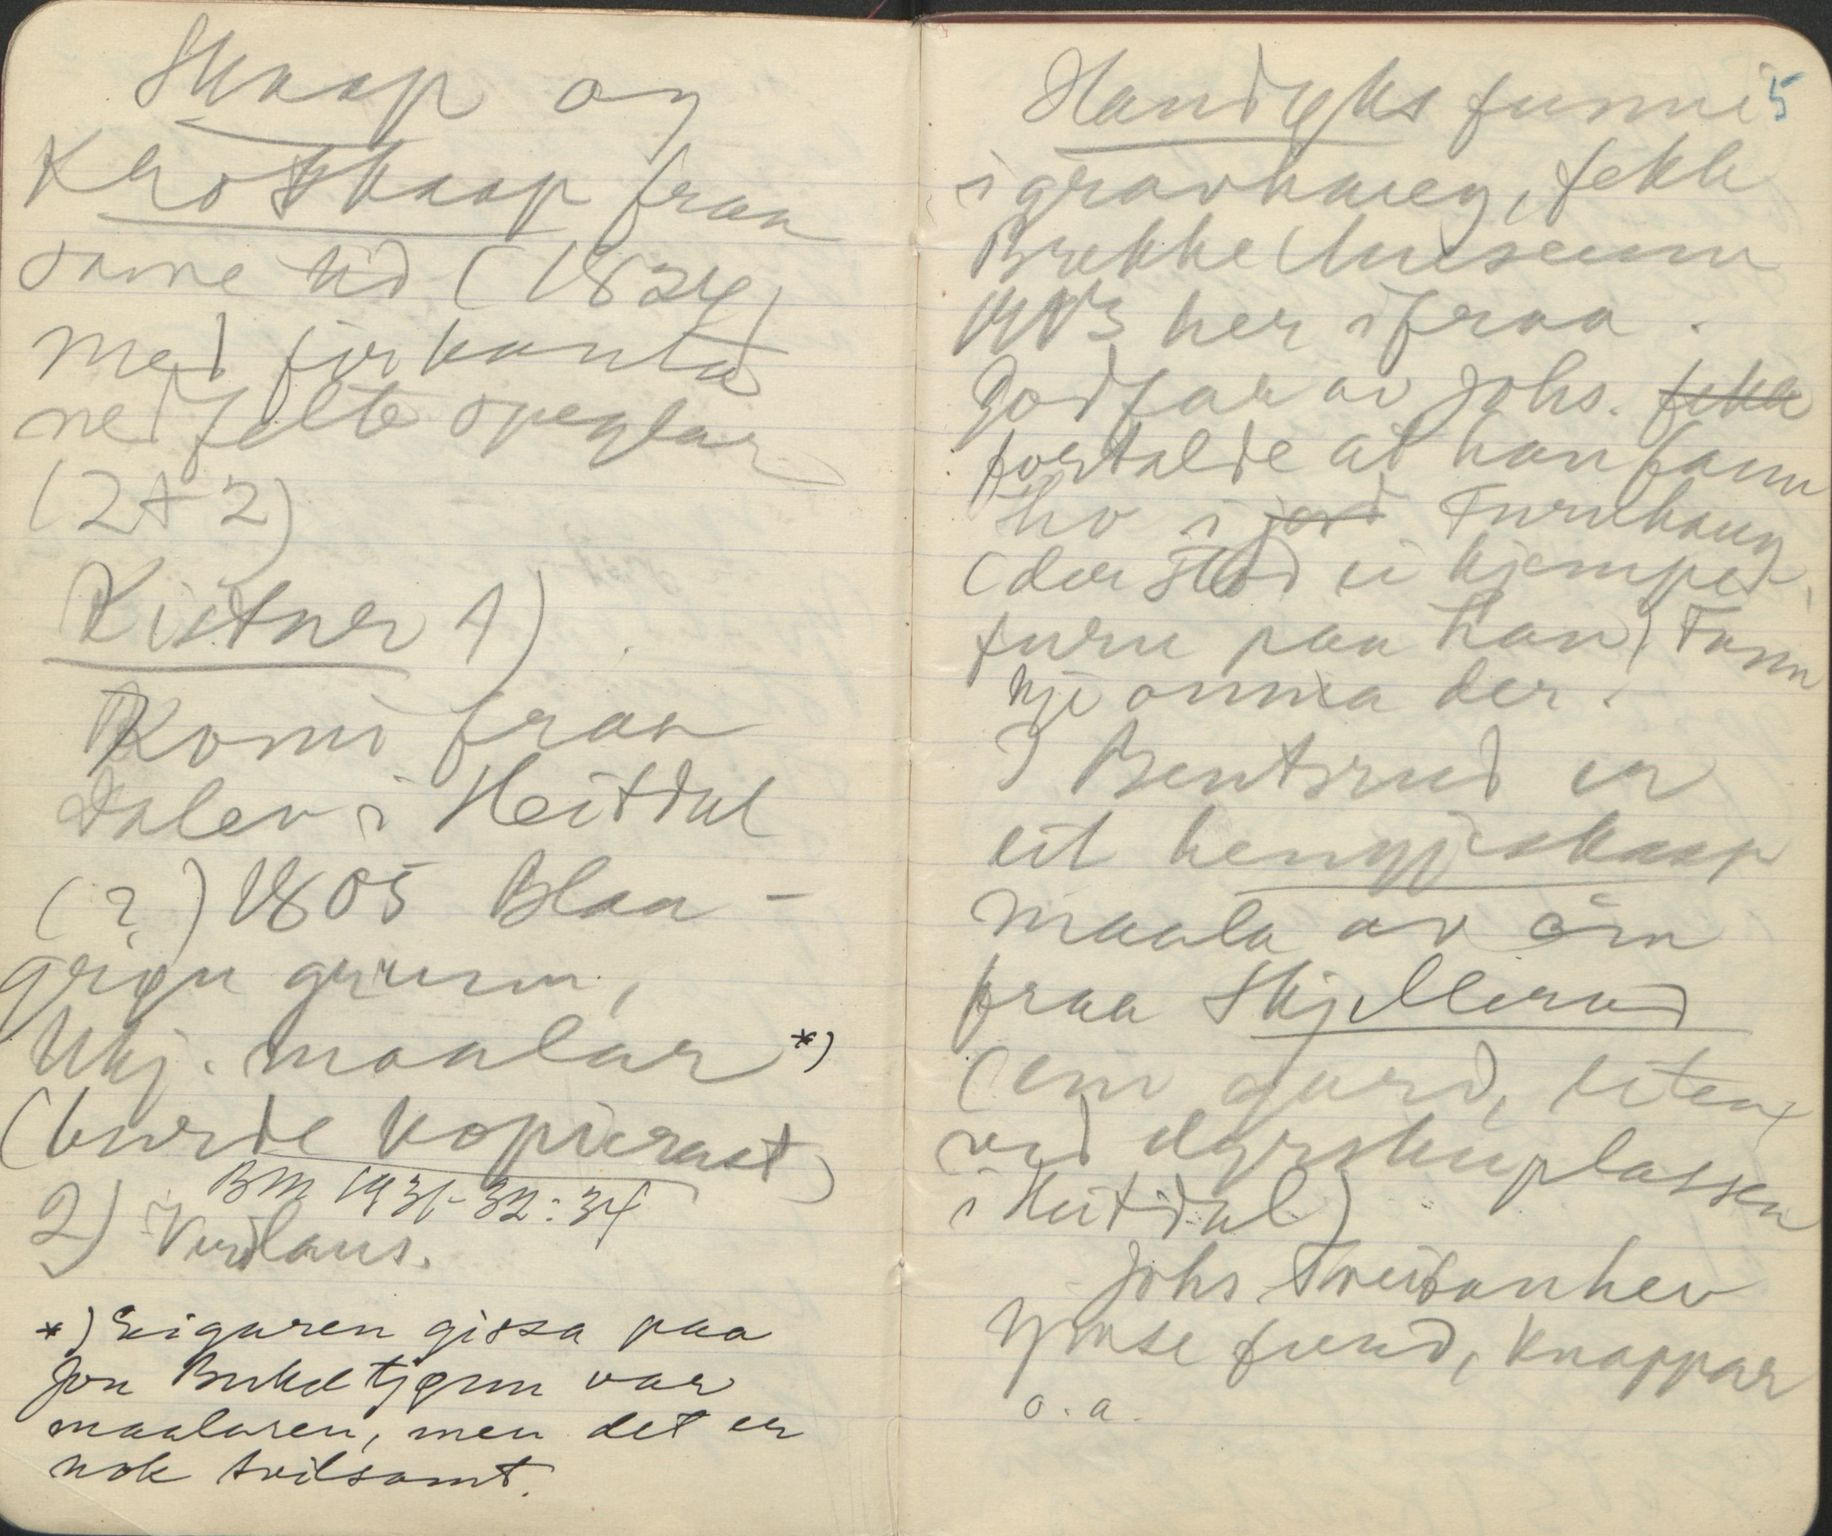 Skaap og
Kroskaap fraa
same tid (1824)
med firkanta
nedfelte speglar
(2+2)
Kistner 1)
Komi fraa
Dalen i Heitdal
(?) 1805 Blaa-
grøn grunn,
Ukj. maalar *)
(burde kopierast)
BM 1931-32:34
2) Verdlaus.
*) Eigaren gissa paa
Jon Buhdtjønn var
maalaren, men det er
nok tvilsamt.
5
Handyks funni
i gravhaug, fekk
Brekke Museum
1913 her ifraa.
Godfar av Johs. fekk
fortalde at han fann
ho i jord Furuhaug
(der stod ei kjempe-
furu paa han) Fann
kje anna der.
I Bentsrud er
eit hengjeskaap
maala av ein
fraa Skjellerud
(ein gard, liten
ved dyrskuplassen
i Heitdal)
Johs hev
ymse funnd, knappar
o.a.